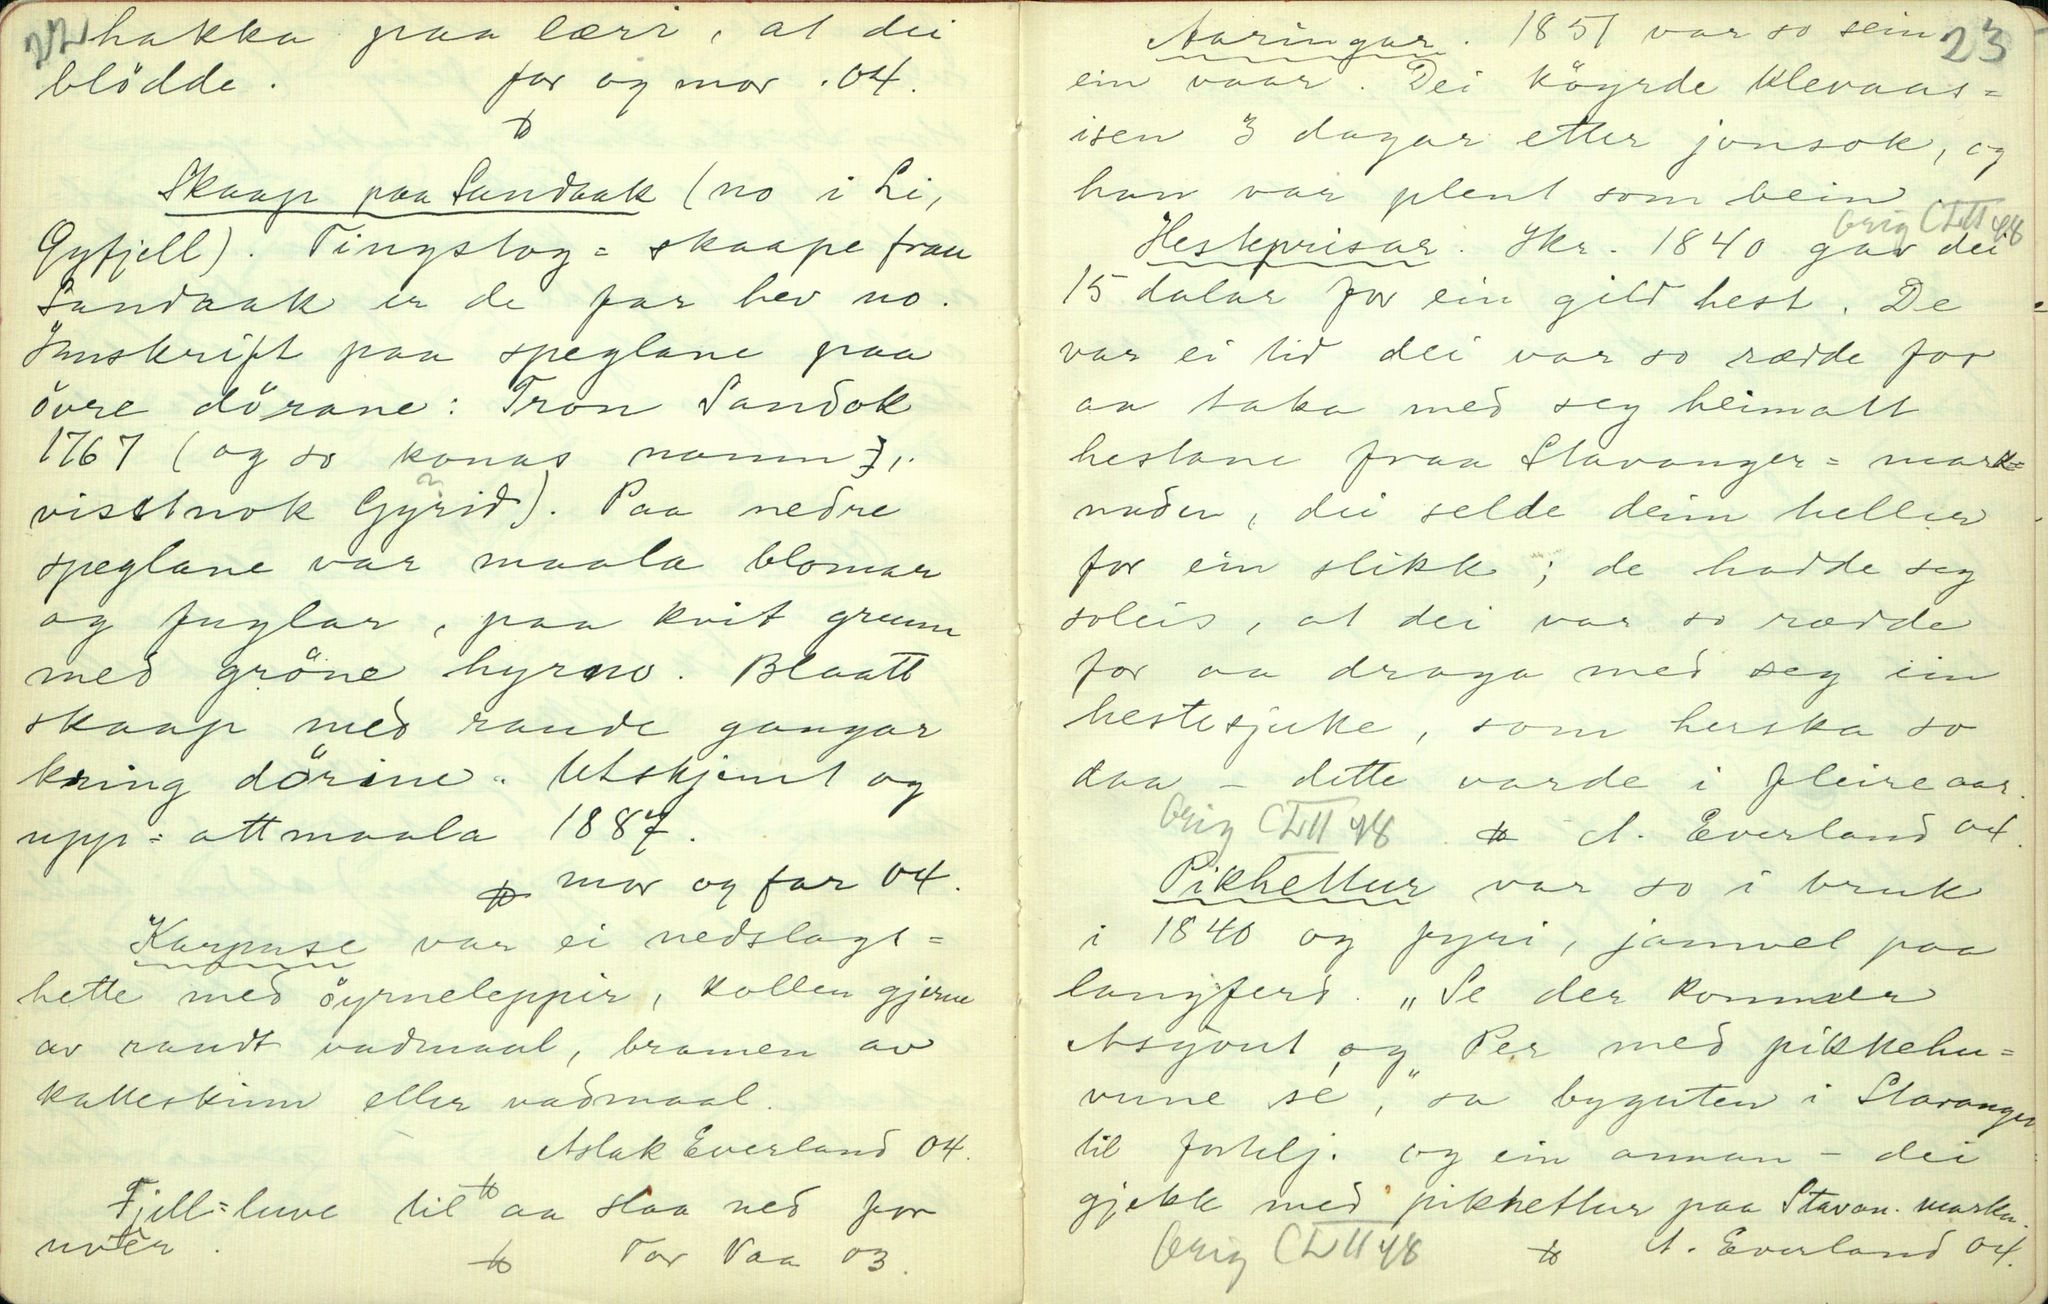 22 hakka paa læri, at dei
blödde. far og mor. 04.
Skaap paa Sandaak (no i Li,
Öyfjell). Tingstog = skaape fraa
Sandaak er de far hev no.
Innskrift paa speglane paa
övre dörane: Tron Sandok
1767 (og so konas namn),
visstnok Gyrid). Paa nedre
speglane var maala blomar
og fuglar, paa kvit grunn
med gröne hyrno. Blaatt
skaap med raude gangar
kring dörine. Utskjemt og
upp=attmaala 1887.
mor og far 04.
Karpuse var ei nedslags=
hette med öyrneleppir, kollen gjerne
av raudt vadmaal, bramen av
katteskinn eller vadmaal.
Aslak Everland 04.
Fjell=luve til aa slaa ned for
uvêr.
Tor Vaa 03.
23
Aaringar. 1851 var so sein
ein vaar. Dei köyrde Klevaas=
isen 3 dagar etter jonsok, og
han var plent som bein.
orig CLII 48
Hesteprisar. Ikr. 1840 gav dei
15 dalar for ein gild hest. De
var ei tid dei var so rædde for
aa taka med seg heimatt
hestane fraa Stavanger=mark=
naden, dei selde deim heller
for ein slikk; de hadde seg
soleis, at dei var so rædde
for aa draga med seg ein
hestesjuke, som herska so
daa – dette varde i fleire aar.
Orig CLII 48 A. Everland 04.
Pikhettur var so i bruk
i 1840 og fyri, jamvel paa
langferd. „Se der kommer
Asgout og Per med pikkehu=
vune sé," sa byguten i Stavanger
til fortelj. og ein annan – dei
gjekk med pikhettur paa Stavan. markn.
Orig CLII 48 A. Everland 04.